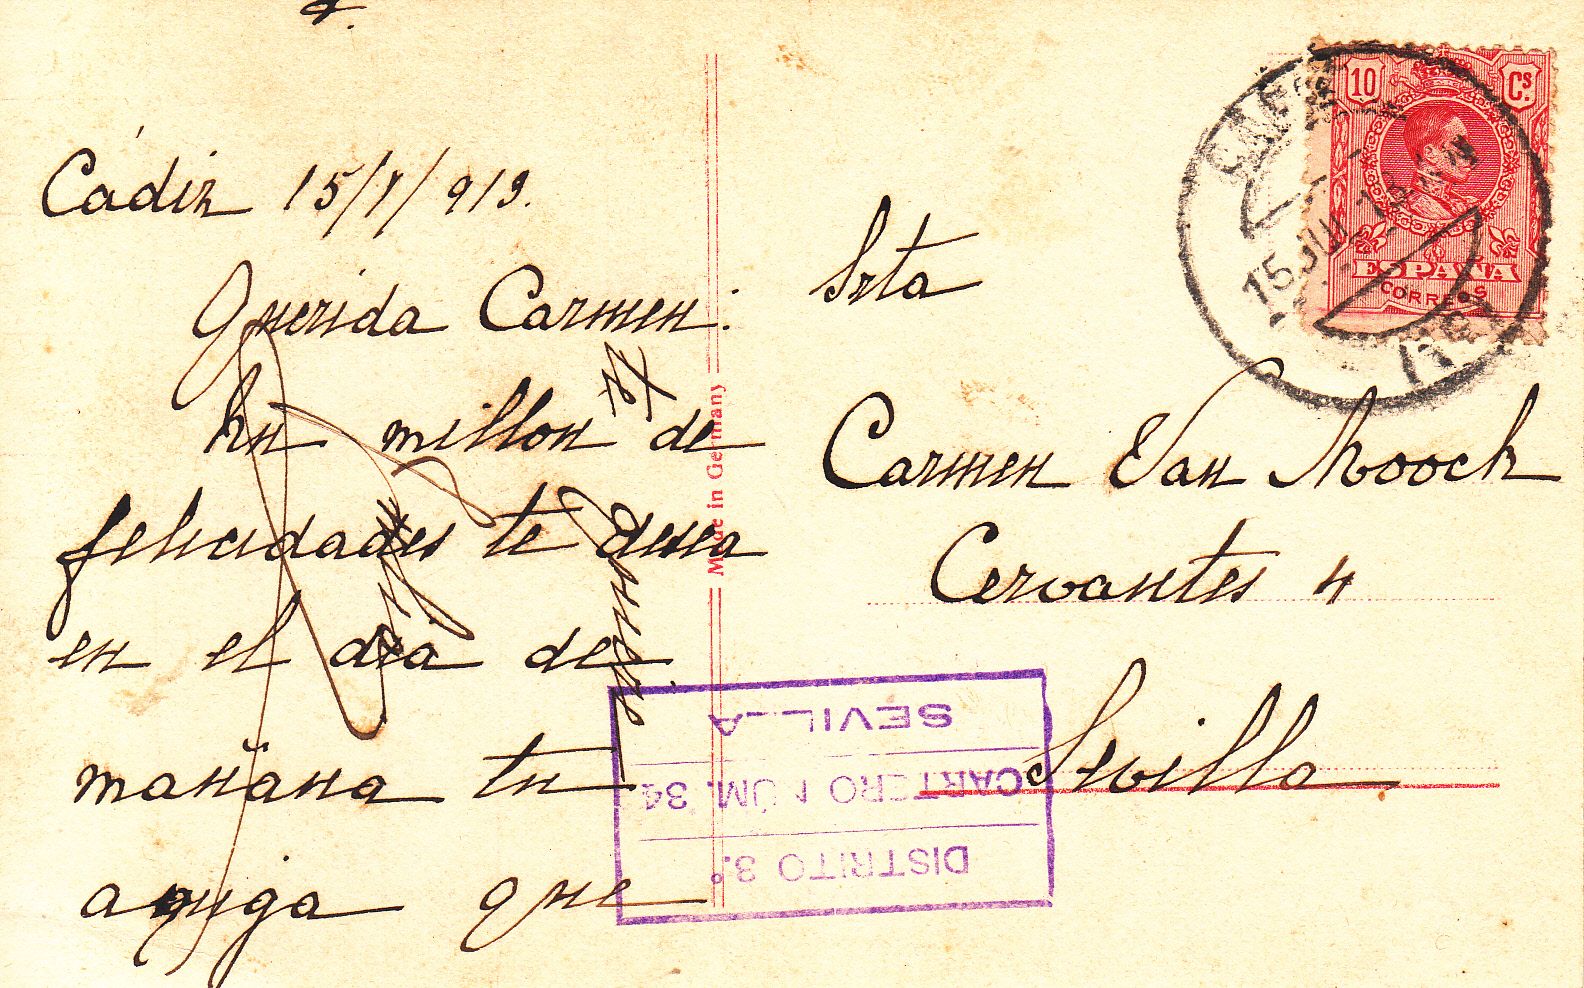 Cádiz 15/7/913.
Querida Carmen:
Un millon de
felicidades te desea
en el dia de
mañana tu
amiga que
Srta
Carmen Van Moock
Cervantes 4
Sevilla
Made in Germany
10 Cs.
ESPAÑA
CORREOS
15 JUL 13
DISTRITO 3.º
CARTERO NÚM. 34
SEVILLA